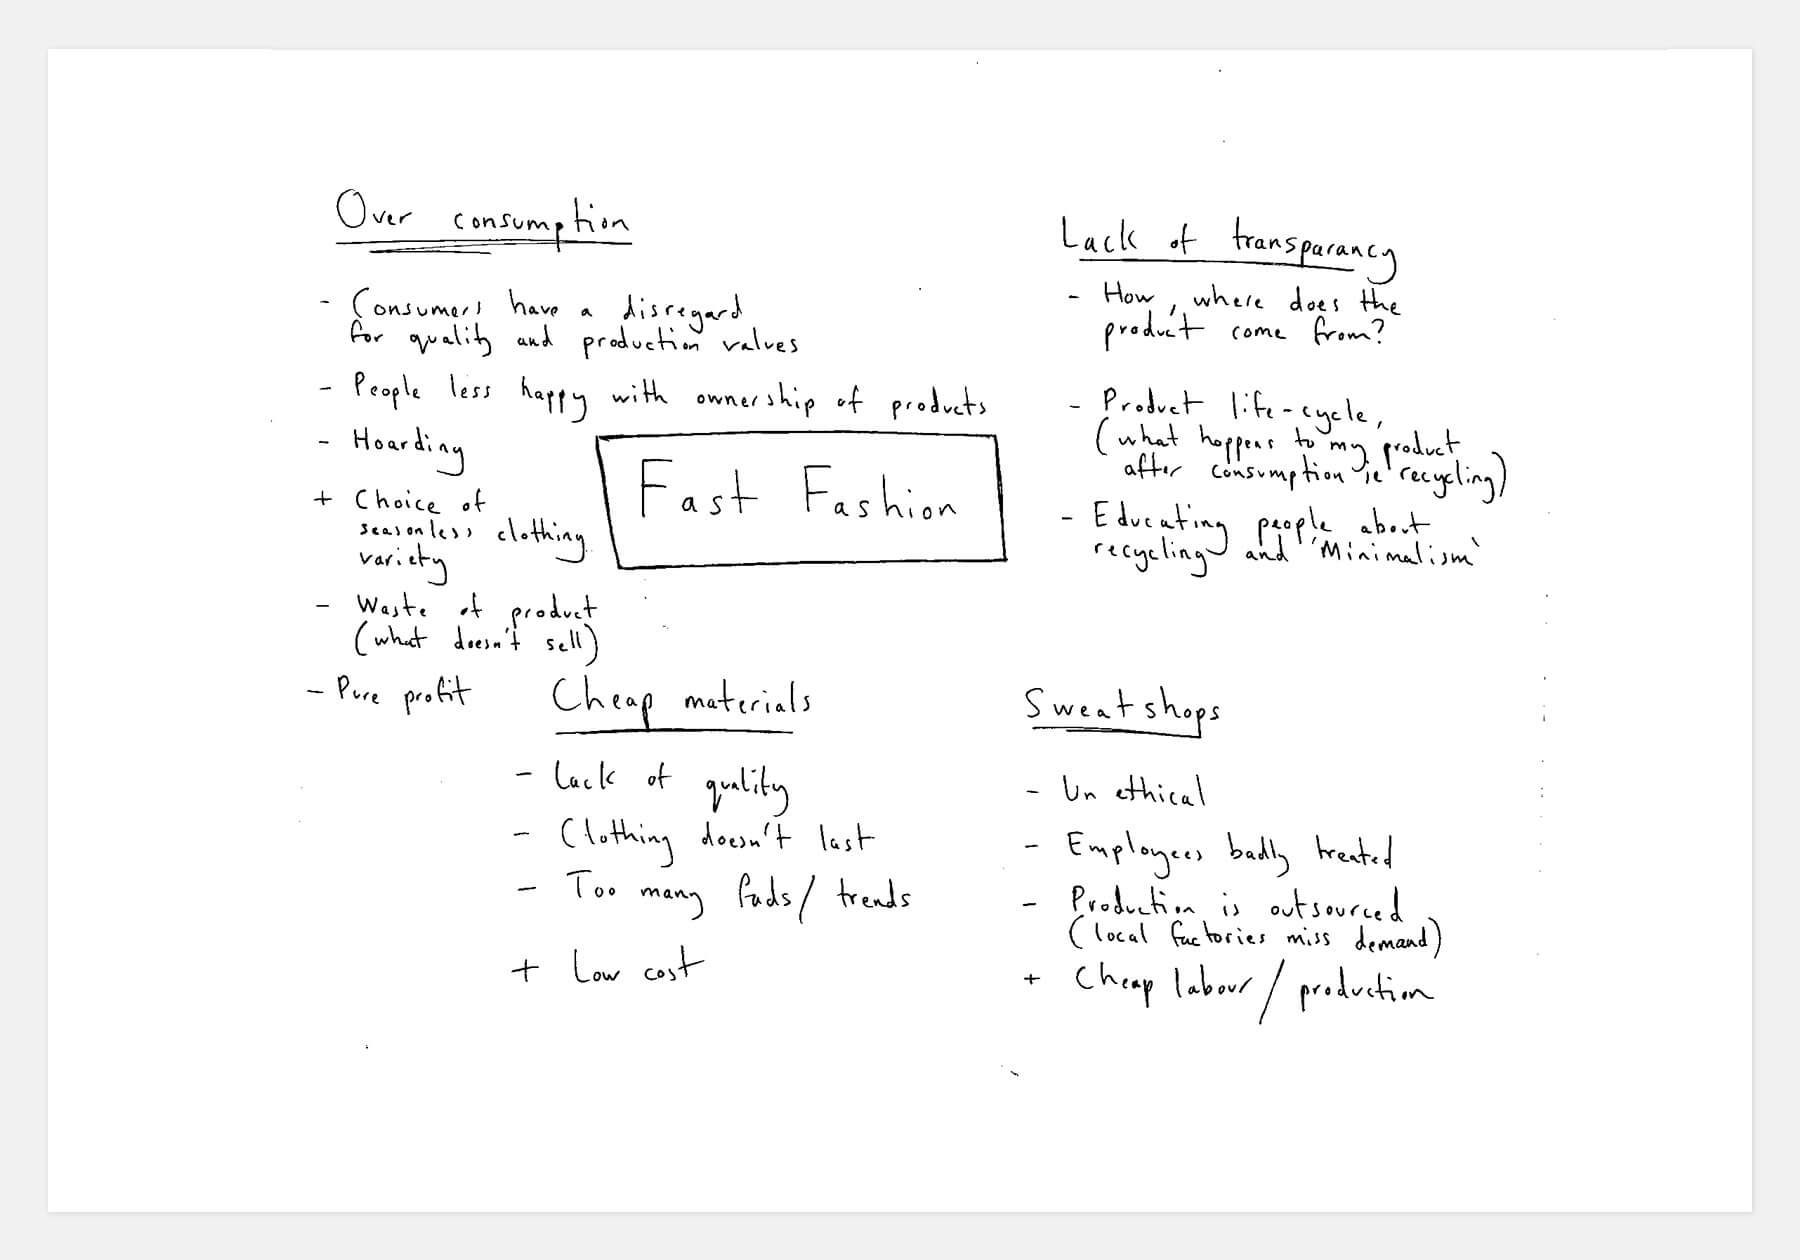 Over consumption
- Consumers have a disregard
for quality and production values
- People less happy with ownership of products
- Hoarding
+ Choice of
seasonless clothing
variety
- Waste of product
(what doesn't sell)
- Pure profit
Fast Fashion
Lack of transparancy
- How, where does the
product come from?
- Product life-cycle,
(what happens to my product
after consumption ie recycling)
- Educating people about
recycling and 'Minimalism'
Cheap materials
- Lack of quality
- Clothing doesn't last
- Too many fads/ trends
+ Low cost
Sweatshops
- Un ethical
- Employees badly treated
- Production is outsourced
(local factories miss demand)
+ Cheap labour/ production